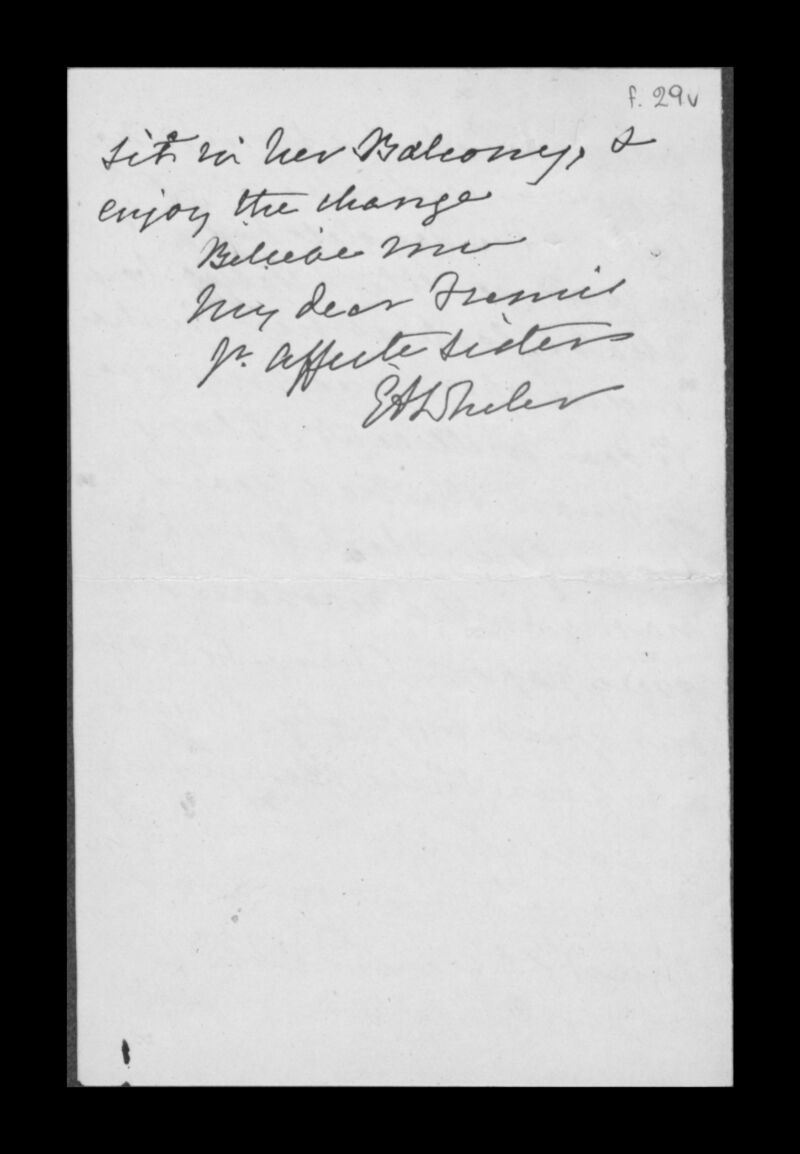 f. 29v
sit in her Balcony, &
enjoy the change
Believe me
My dear Francis
yr. affecte sister
EAWheler